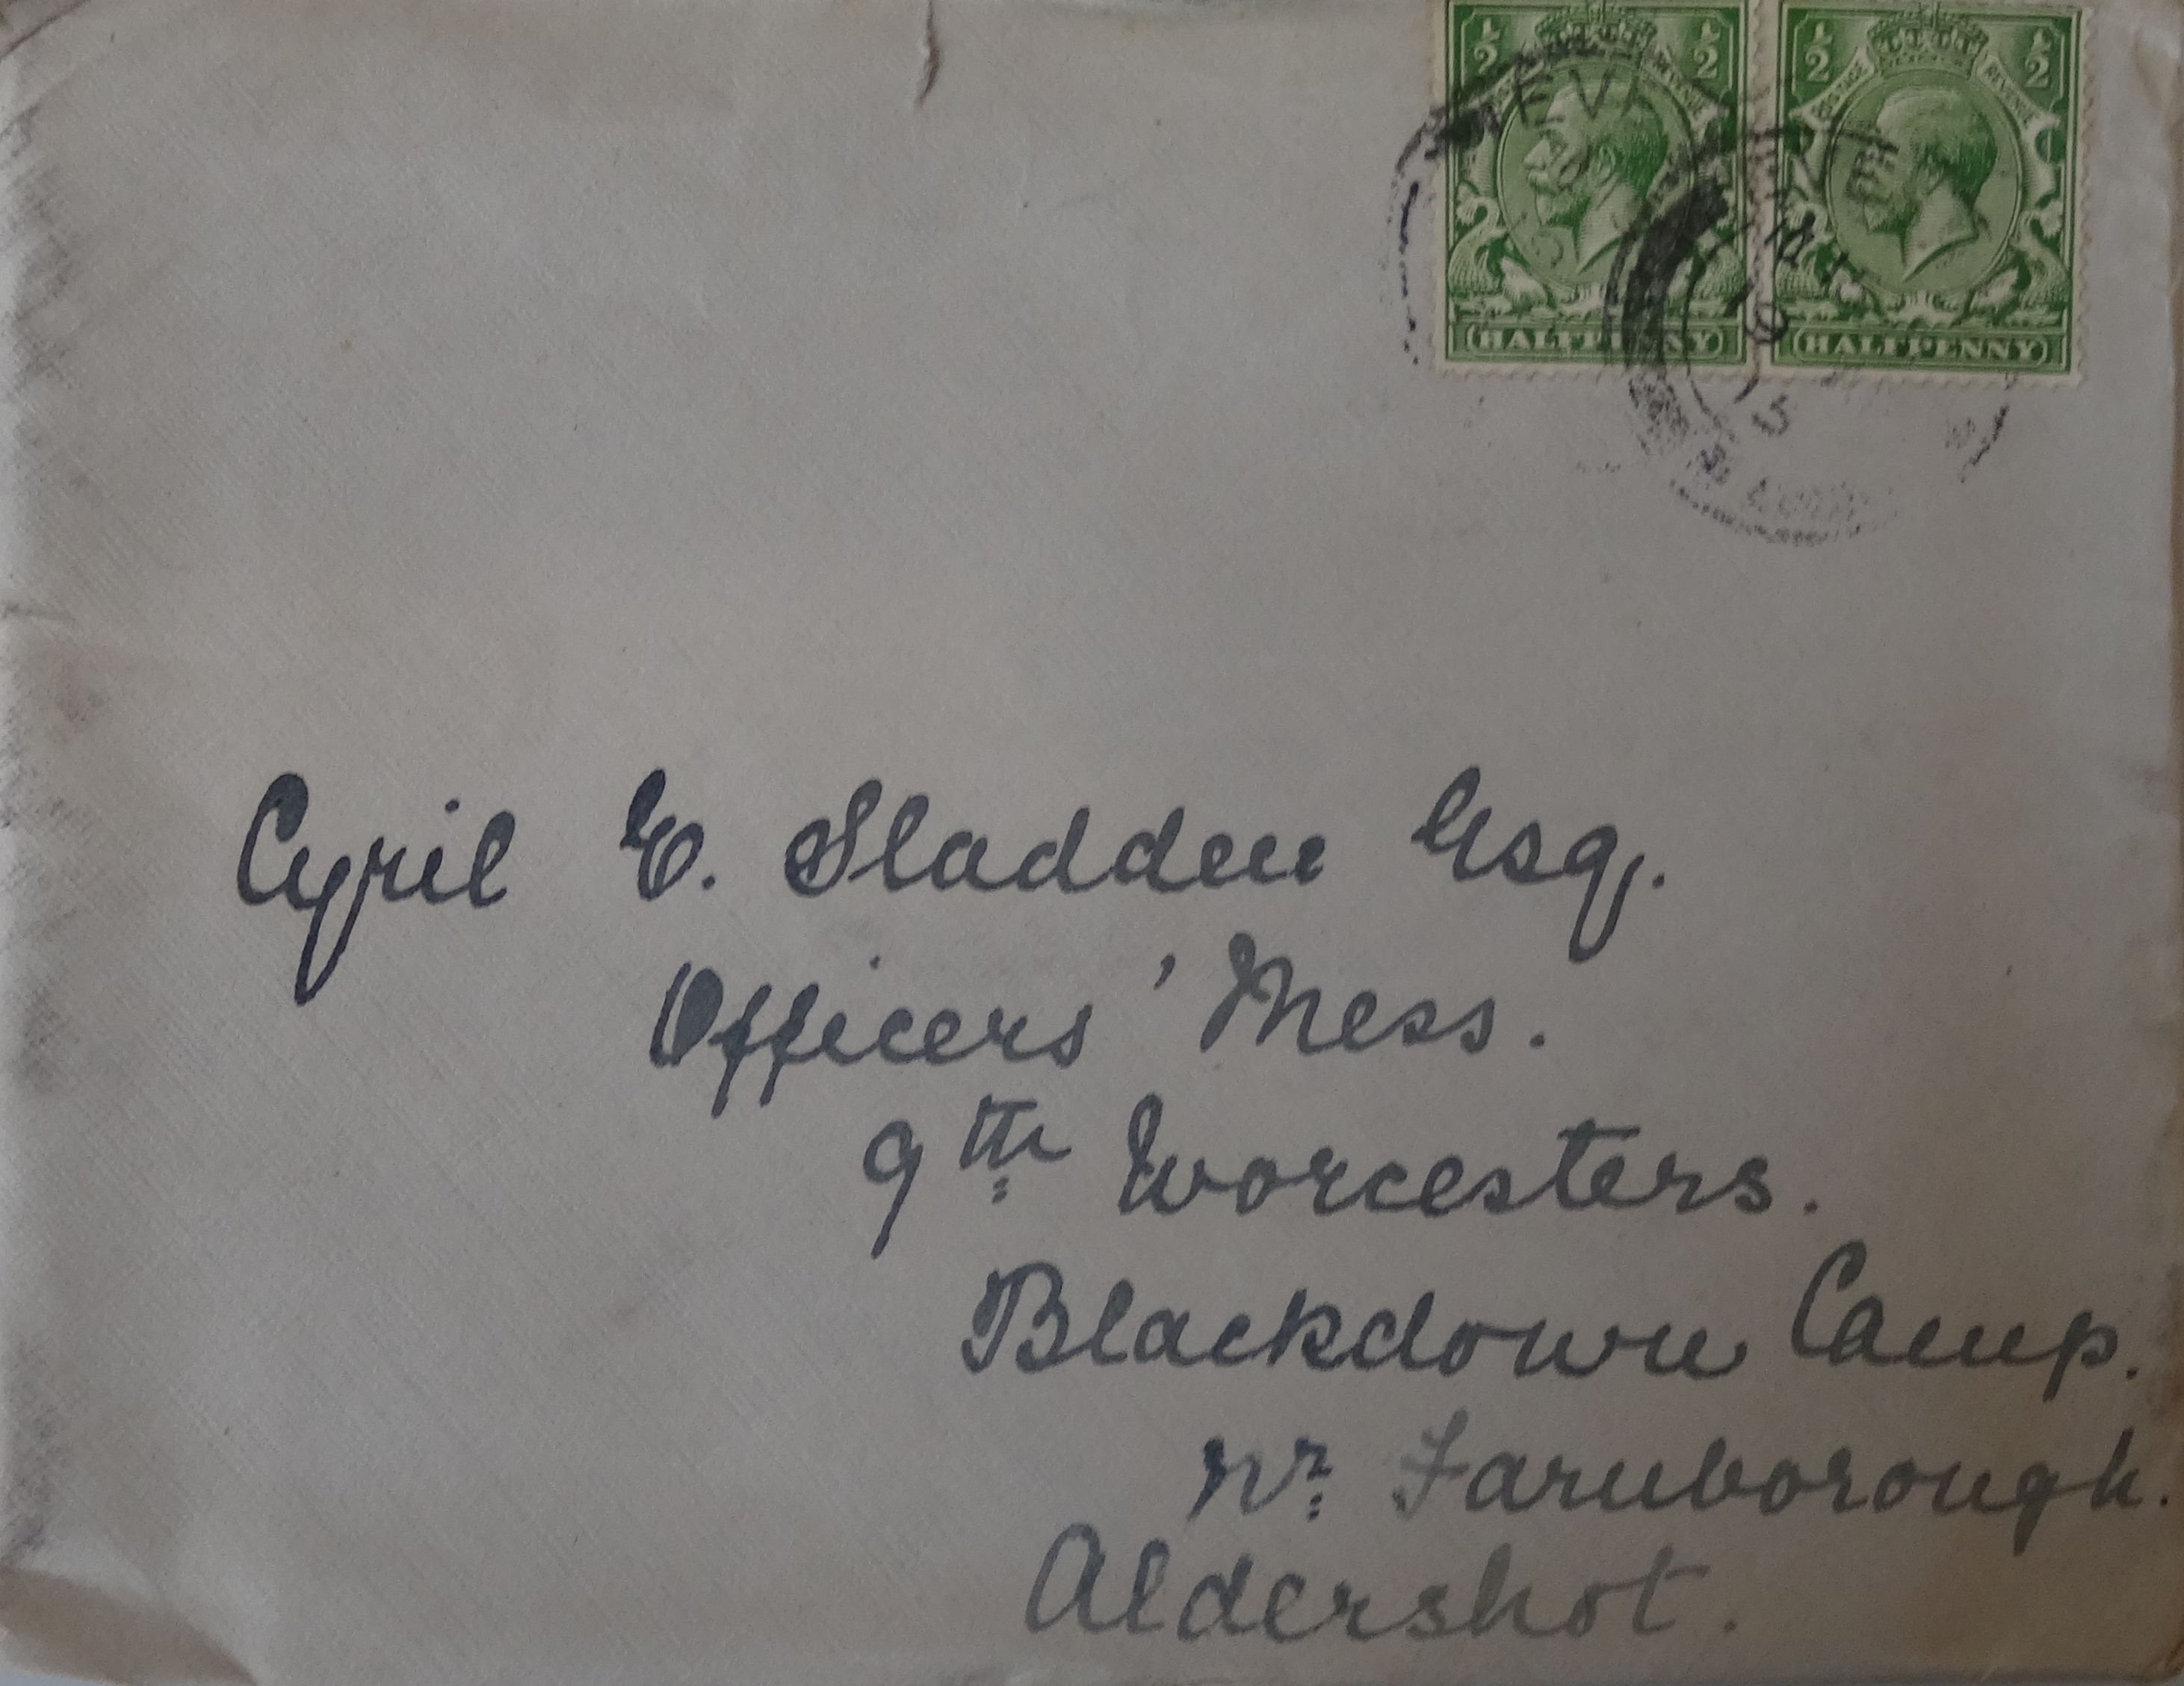 ½ ½ ½ ½
HALFPENNY HALFPENNY
15
Cyril E. Sladden Esq.
Officers' Mess.
9th Worcesters.
Blackdown Camp.
nr Farnborough.
Aldershot.